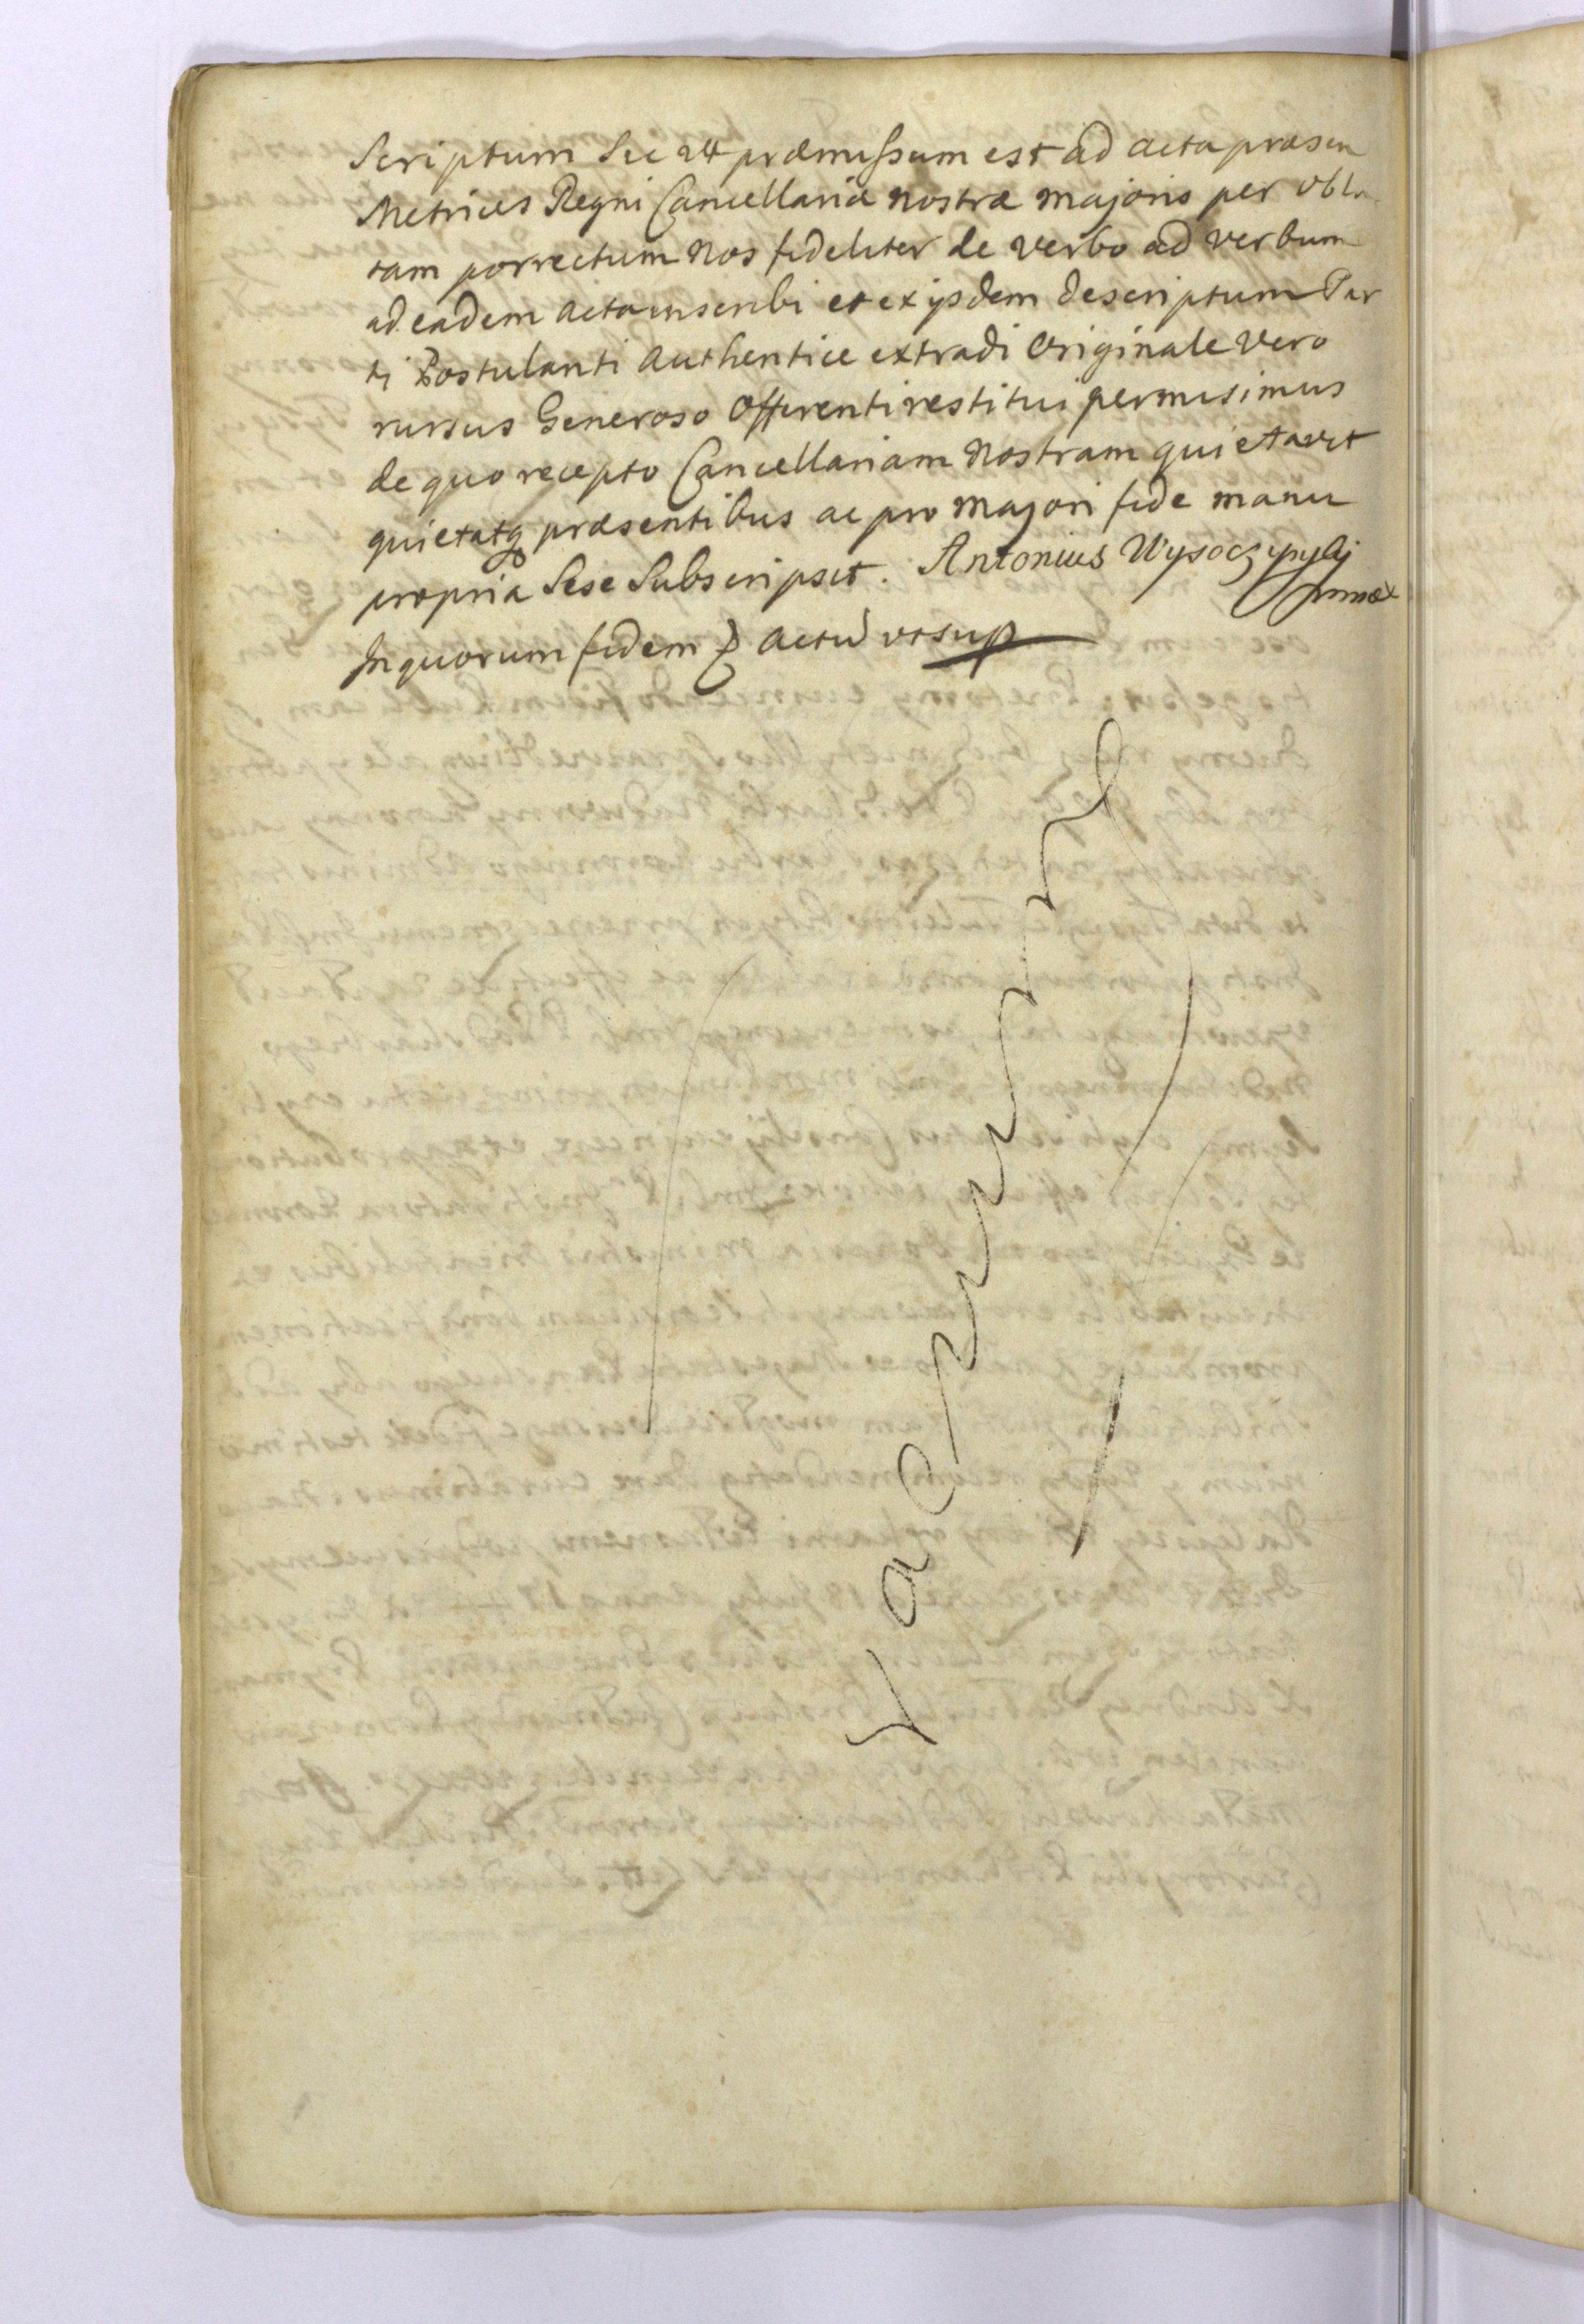 Scriptum Sic ut præmissum est ad acta præsen
Metrices Regni Cancellariæ nostræ majoris per obla
tam porrectum nos fideliter de verbo ad verbum
ad eadem acta inscribi et ex ijsdem descriptum Par
ti Postulanti authentice extradi originale vero
rursus Generoso Offerenti restitui permisimus
de quo recepto Cancellariam nostram quietavit
quietatq præsentibus ac pro majori fide manu
propria Sese Subscripsit. Antonius Wysoczynski
In quorum fidem &c actũ ut sup
Vacuum